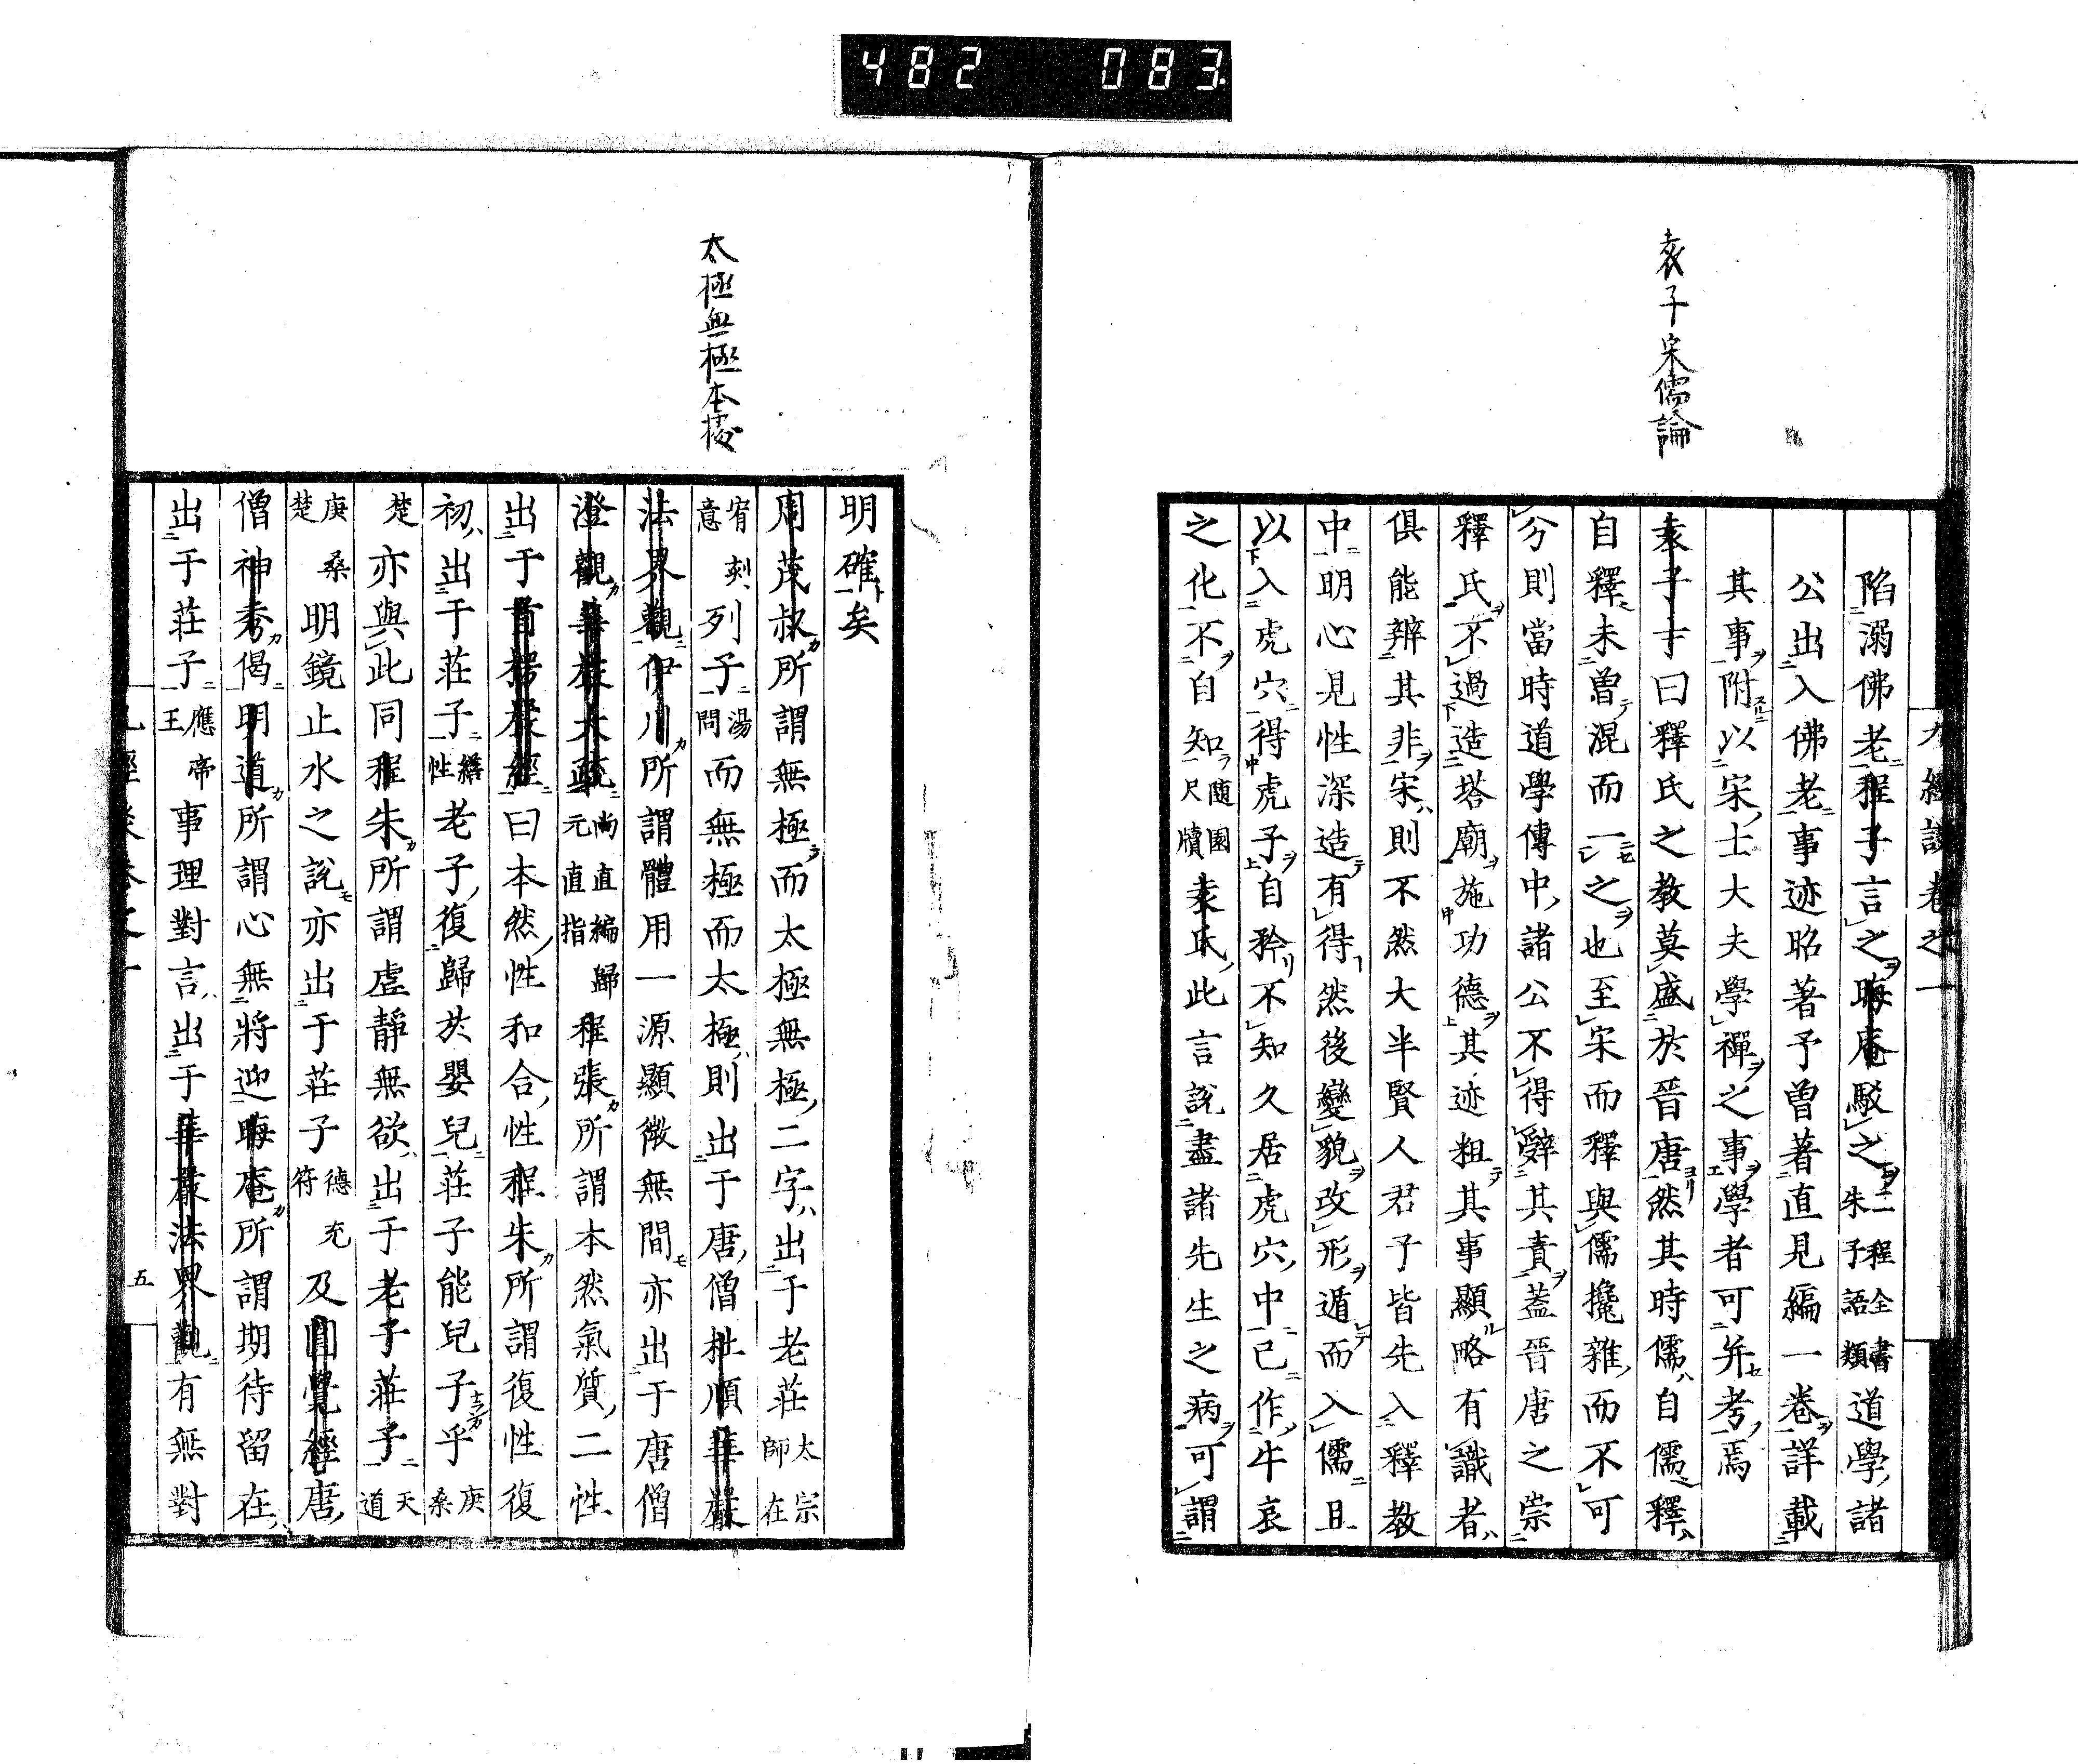 482 083
袁子宋儒論
九經談卷之一
陷溺佛老程子言之晦庵駁之二程全書朱子語類道學諸
公出入佛老事迹昭著予曽著直見編一巻詳載
其事附以宋士大夫學禪之事學者可并考焉
袁子才曰釋氏之教莫盛於晉唐然其時儒自儒釋
自釋未曽混而一之也至宋而釋與儒攙雜而不可
分則當時道學傳中諸公不得辭其責蓋晉唐之崇
釋氏不過造塔廟施功德其迹粗其事顯略有識者
俱能辨其非宋則不然大半賢人君子皆先入釋教
中明心見性深造有得然後變貌改形遁而入儒且
以入虎穴得虎子自矜不知久居虎穴中已作牛哀
之化不自知随園尺牘袁氏此言説盡諸先生之病可謂
太極無極本據
明確矣
周茂叔所謂無極而太極無極二字出于老荘太宗師在
宥刻意列子湯問而無極而太極則出于唐僧杜順華嚴
法界觀伊川所謂體用一源顯微無間亦出于唐僧
澄觀華嚴大疏尚直編歸元直指程張所謂本然氣質二性
出于首楞嚴經曰本然性和合性程朱所謂復性復
初出于荘子繕性老子復歸於嬰兒荘子能兒子乎庚桑
楚亦與此同程朱所謂虛靜無欲出于老子荘子天道
庚桑楚明鏡止水之説亦出于荘子德充符及圓覺經唐
僧神秀偈明道所謂心無將迎晦庵所謂期待留在
出于荘子應帝王事理對言出于華嚴法界觀有無對
九經談卷之一
五